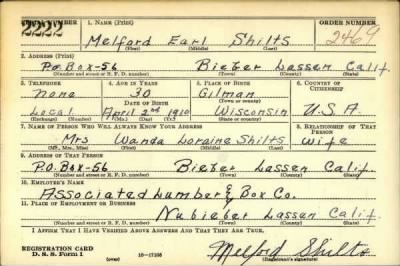 SERIAL NUMBER 1. NAME (Print) ORDER NUMBER
2222 Melford Earl Shilts 2469
(First) (Middle) (Last)
2. ADDRESS (Print)
P.O. Box-56 Bieber Lassen Calif.
(Number and street or R. F. D. number) (Town) (County) (State)
3. TELEPHONE 4. AGE IN YEARS 5. PLACE OF BIRTH 6. COUNTRY OF CITIZENSHIP
None 30 Gilman
DATE OF BIRTH (Town or county)
Local April 2nd 1910 Wisconsin U.S.A.
(Exchange) (Number) (Mo.) (Day) (Yr.) (State or country)
7. NAME OF PERSON WHO WILL ALWAYS KNOW YOUR ADDRESS 8. RELATIONSHIP OF THAT PERSON
Mrs Wanda Loraine Shilts wife
(Mr., Mrs., Miss) (First) (Middle) (Last)
9. ADDRESS OF THAT PERSON
P.O. Box-56 Bieber Lassen Calif.
(Number and street or R. F. D. number) (Town) (County) (State)
10. EMPLOYER'S NAME
Associated Lumber & Box Co.
11. PLACE OF EMPLOYMENT OR BUSINESS
Nubieber Lassen Calif.
(Number and street or R. F. D. number) (Town) (County) (State)
I AFFIRM THAT I HAVE VERIFIED ABOVE ANSWERS AND THAT THEY ARE TRUE.
REGISTRATION CARD
D. S. S. Form 1 (over) 16-17105 Melford Shilts
(Registrant's signature)